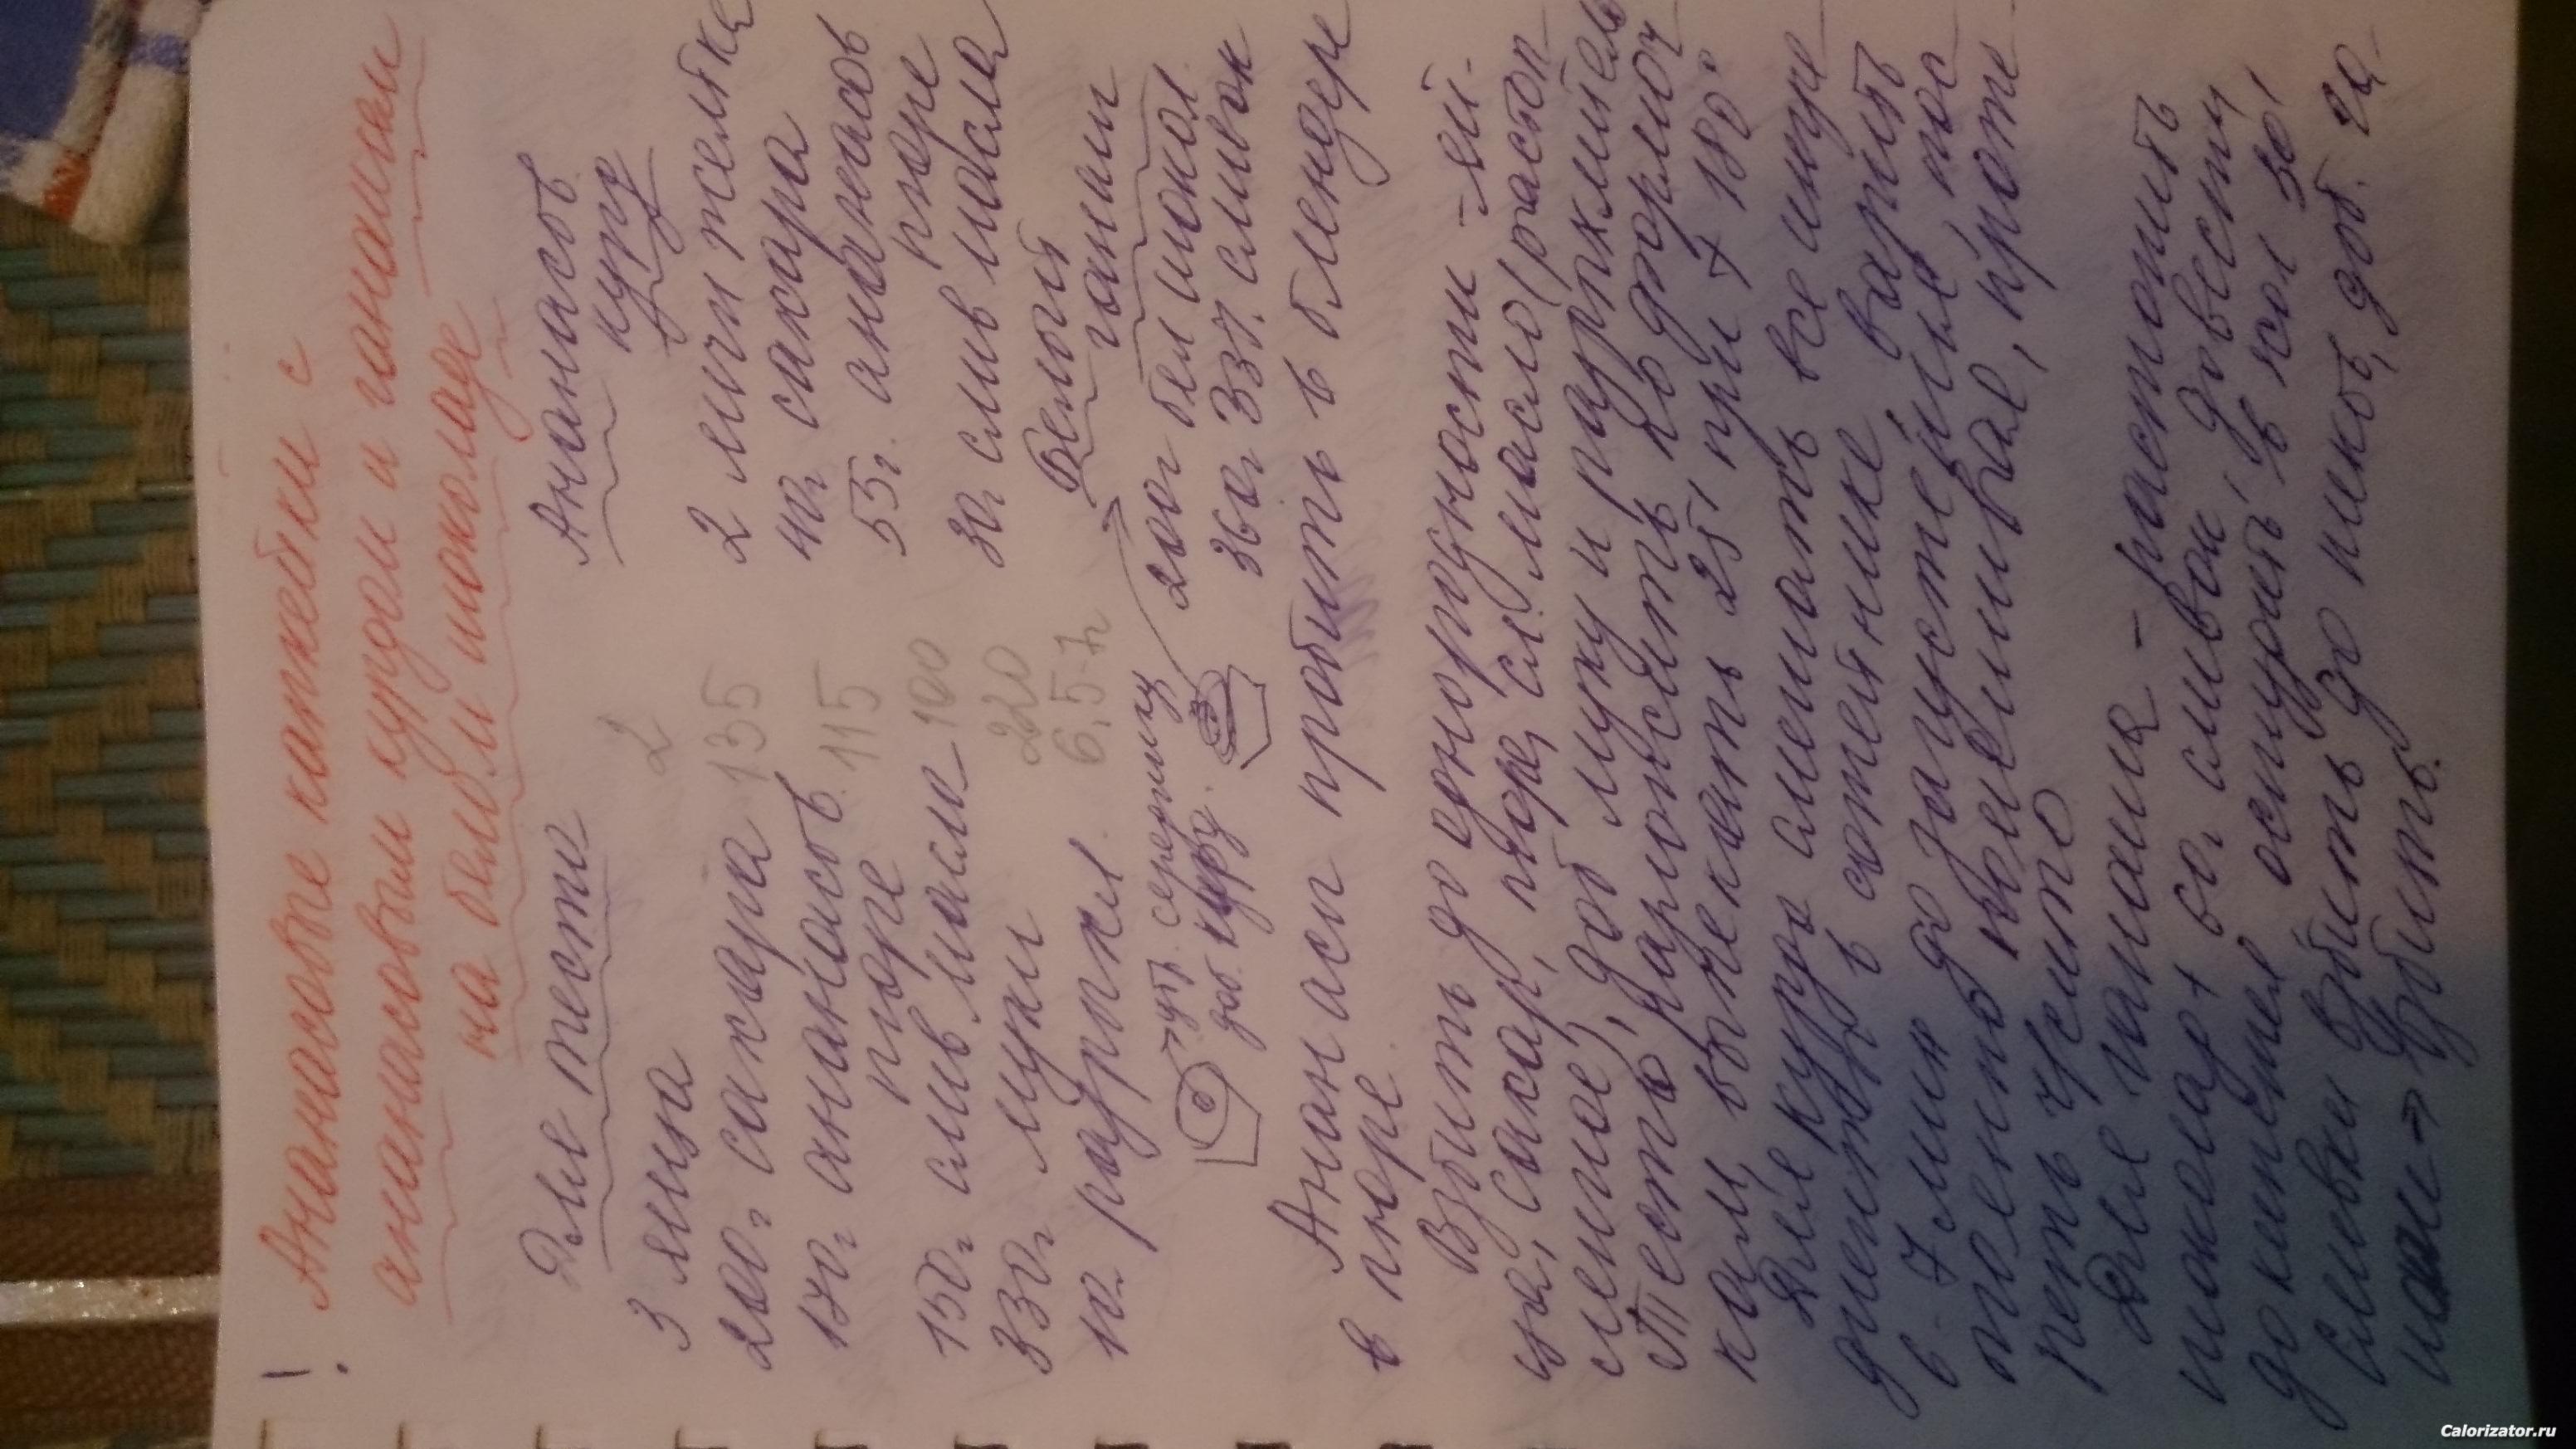 ! Ананасовые капкейки с
ананасовым курдом и ганашем
на белом шоколаде
Для теста
3 яйца 2
200г сахара 135
170г ананасов. 115
пюре
150г слив масла 100
330г муки 220
10г разрыхл. 6,5-7г
Ананасов.
курд
2 яичн желтка
40г сахара
55г ананасов
пюре
30г слив масла
Белый
ганаш
200г бел шокол
360г 33% сливок
середину
доб курд.
Ананасы пробить в блендере
в пюре.
Взбить до однородности - яй-
ца, сахар, пюре, сл. масло (растоп-
ленное), доб муку и разрыхлитель
Тесто разложить по формоч-
кам, выпекать 25' при t 180°
Для курда смешать все ингре-
диенты в сотейнике варить
6-7 мин до загустения, пос-
тоянно помешивая, проте-
реть через сито
Для ганаша - растопить
шоколад + 60г сливок, довести
до кипения остудить в хол 30'
Сливки взбить до пиков, доб. га-
наш → взбить.
Calorizator.ru